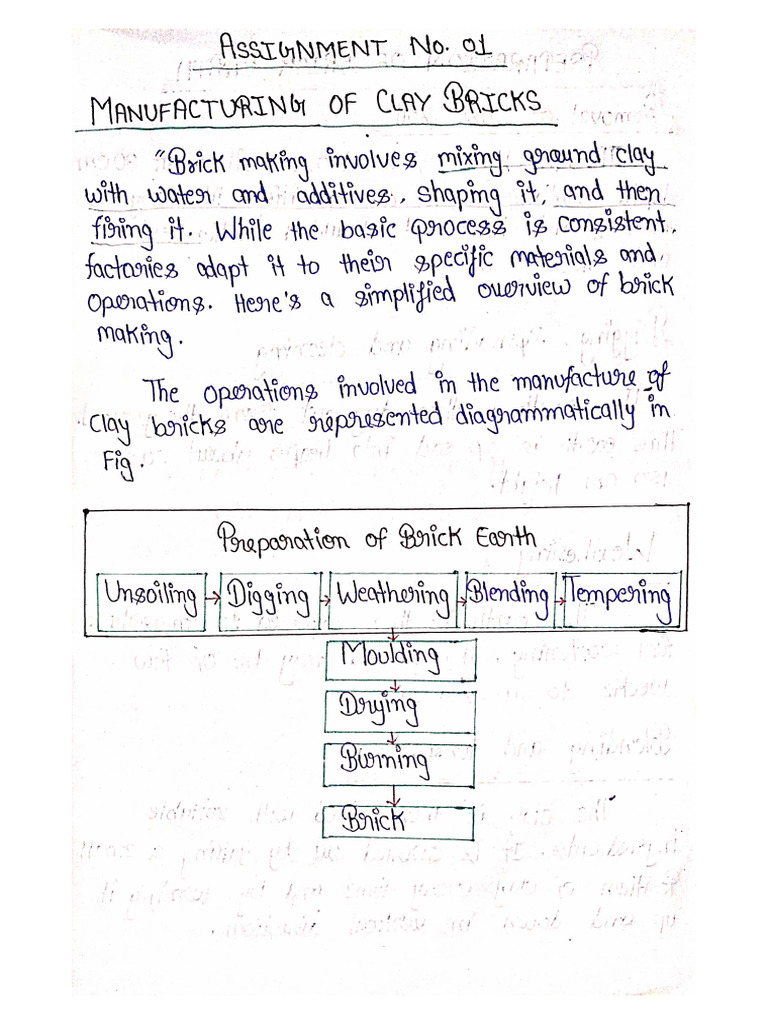 ASSIGNMENT NO. 01
MANUFACTURING OF CLAY BRICKS
"Brick making involves mixing ground clay
with water and additives, shaping it, and then
firing it. While the basic process is consistent,
factories adapt it to their specific materials and
operations. Here's a simplified overview of brick
making.
The operations involved in the manufacture of
Clay bricks are represented diagrammatically in
Fig.
Preparation of Brick Earth
Unsoiling → Digging → Weathering → Blending → Tempering
Moulding
Drying
Burning
Brick